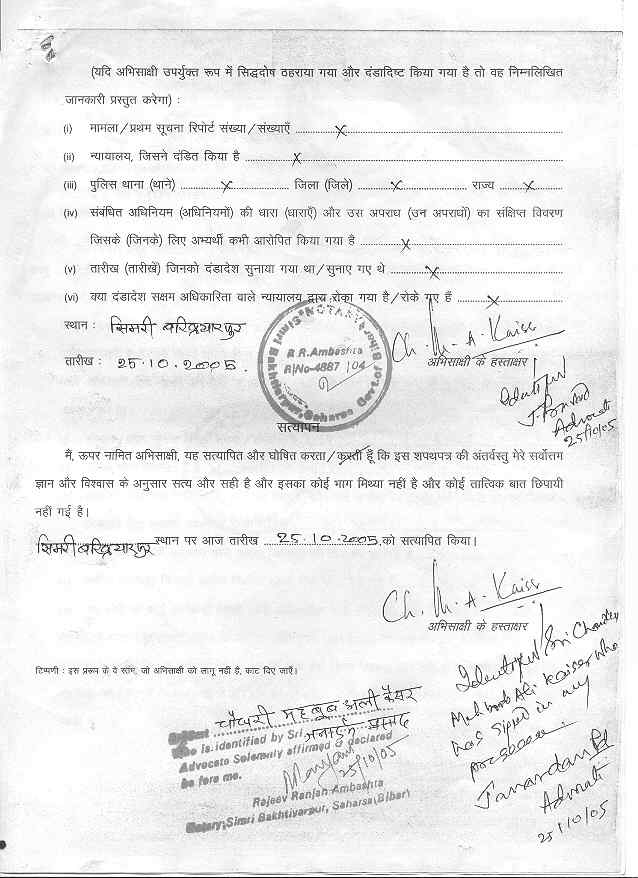 (यदि अभिसाक्षी उपर्युक्त रूप में सिद्धदोष ठहराया गया और दंडादिष्ट किया गया है तो वह निम्नलिखित
जानकारी प्रस्तुत करेगा) :
(i) मामला/प्रथम सूचना रिपोर्ट संख्या/संख्याएँ ........x........
(ii) न्यायालय, जिसने दंडित किया है ........x........
(iii) पुलिस थाना (थाने) ........x........ जिला (जिले) ........x........ राज्य ........x........
(iv) संबंधित अधिनियम (अधिनियमों) की धारा (धाराएँ) और उस अपराध (उन अपराधों) का संक्षिप्त विवरण
जिसके (जिनके) लिए अभ्यर्थी कभी आरोपित किया गया है ........x........
(v) तारीख (तारीखें) जिनको दंडादेश सुनाया गया था/सुनाए गए थे ........x........
(vi) क्या दंडादेश सक्षम अधिकारिता वाले न्यायालय द्वारा रोका गया है/रोके गए हैं ........x........
स्थान : सिमरी बख्तियारपुर
NOTARY Simri Bakhtiarpur, Saharsa Govt. of Bihar
R R.Ambashta
R/No-4887/04
Ch. M. A. Kaiser
अभिसाक्षी के हस्ताक्षर
तारीख : 25.10.2005.
Advocate
25/10/05
सत्यापन
मैं, ऊपर नामित अभिसाक्षी, यह सत्यापित और घोषित करता/करती हूँ कि इस शपथपत्र की अंतर्वस्तु मेरे सर्वोत्तम
ज्ञान और विश्वास के अनुसार सत्य और सही है और इसका कोई भाग मिथ्या नहीं है और कोई तात्विक बात छिपायी
नहीं गई है।
सिमरी बख्तियारपुर स्थान पर आज तारीख 25.10.2005. को सत्यापित किया।
Ch. M. A. Kaiser
अभिसाक्षी के हस्ताक्षर
टिप्पणी : इस प्ररूप के वे स्तंभ, जो अभिसाक्षी को लागू नहीं है, काट दिए जाएँ।
चौधरी महबूब अली कैसर
Who is identified by Sri जनार्दन प्रसाद
Advocate Solemnly affirmed & declared
be fore me.
25/10/05
Rajeev Ranjan Ambashta
Notary, Simri Bakhtiyarpur, Saharsa (Bihar)
Identified Sri Choudhary
Mahboob Ali Kaiser who
has signed in my
presence.
Janardan Pd
Advocate
25/10/05